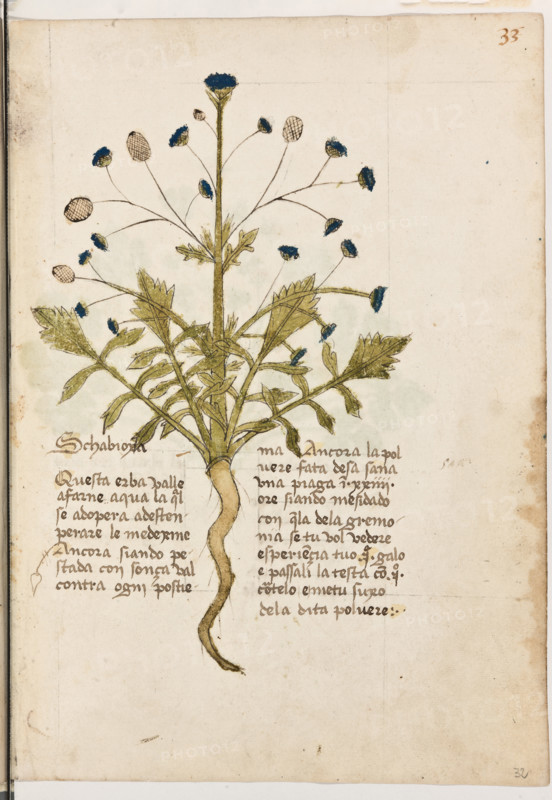 33
Schabioxa
Questa erba valle
afarne aqua la ql
se adopera adesten
perare le medexeme
Ancora siando pe
stada con sonça val
contra ogni postie
ma Ancora la pol
uere fata desa sana
una piaga ī·xxiiii·
ore siando mesidado
con qla dela gremo
nia se tu vol vedere
esperieçia tuo .q̄. galo
e passali la testa cō .q̄.
cōtelo e metu suxo
dela dita poluere:·
32
PHOTO12